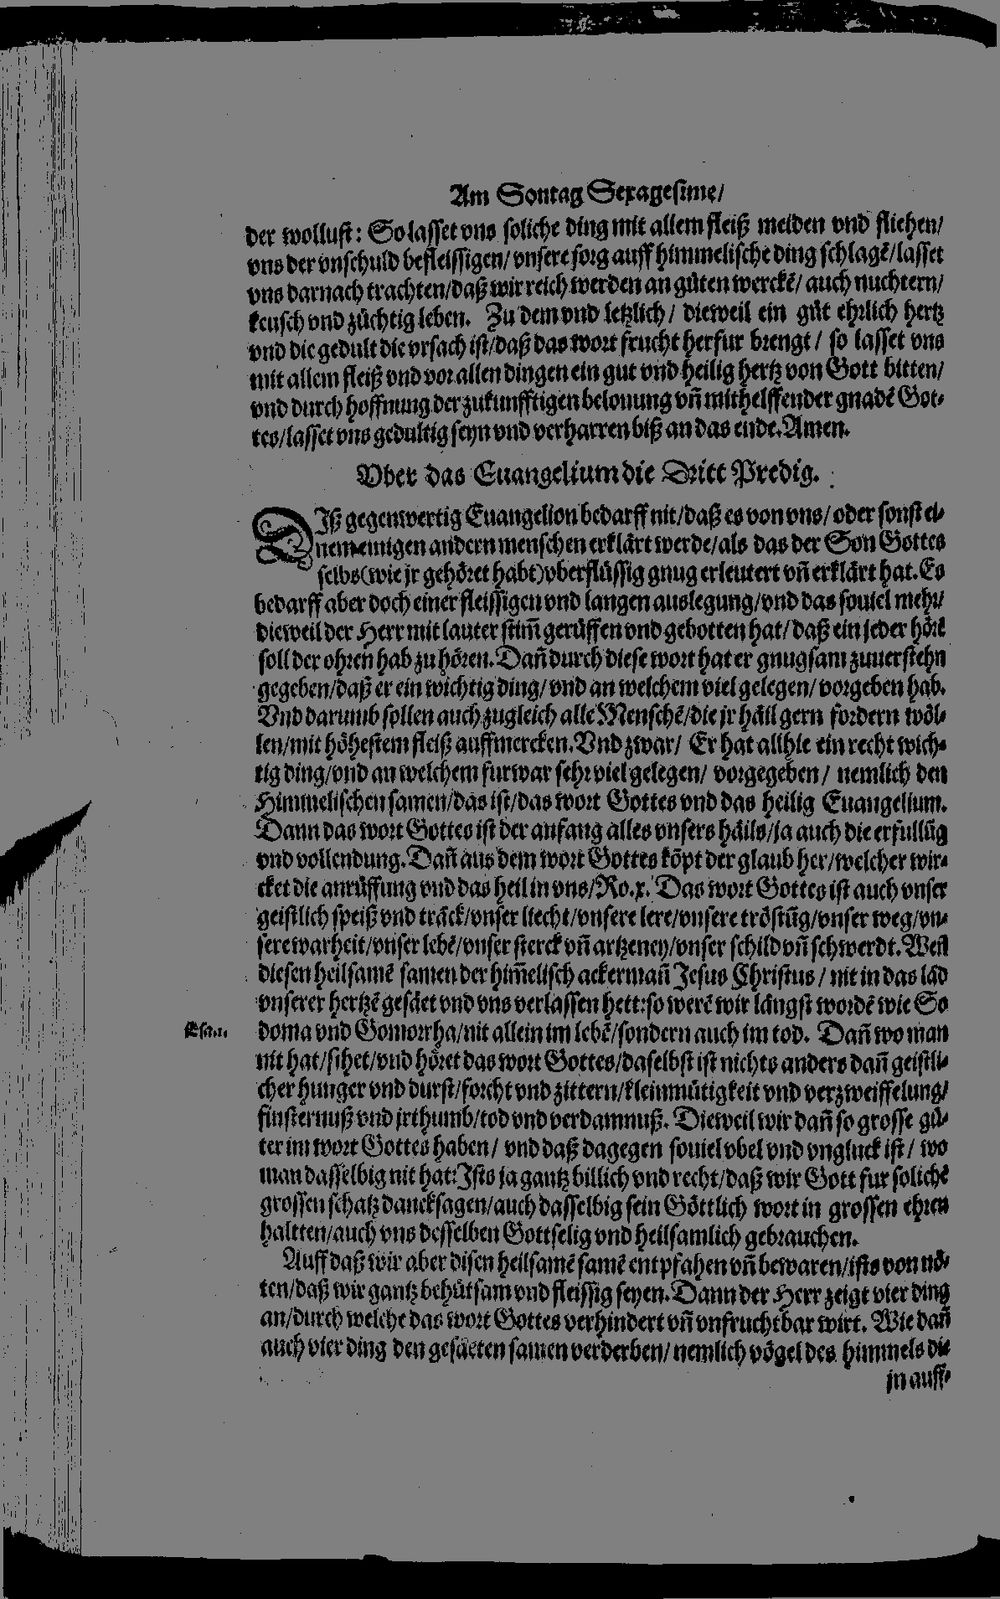 Am Sontag Sexagesime/
der wollust: So lasset vns soliche ding mit allem fleiß meiden vnd fliehen/
vns der vnschuld befleissigen/ vnsere sorg auff himmelische ding schlagẽ/ lasset
vns darnach trachten/ daß wir reich werden an gůten werckẽ/ auch nuchtern/
keusch vnd züchtig leben. Zu dem vnd letzlich/ dieweil ein gůt ehrlich hertz
vnd die gedult die vrsach ist/ daß das wort frucht herfur brengt/ so lasset vns
mit allem fleiß vnd vor allen dingen ein gut vnd heilig hertz von Gott bitten/
vnd durch hoffnung der zukunfftigen belonung vñ mithelffender gnadẽ Got-
tes/ lasset vns gedultig seyn vnd verharren biß an das ende. Amen.
Vber das Euangelium die Dritt Predig.
DIß gegenwertig Euangelion bedarff nit/ daß es von vns/ oder sonst ei-
nem einigen andern menschen erklärt werde/ als das der Son Gottes
selbs (wie jr gehöret habt) vberflüssig gnug erleutert vñ erklärt hat. Es
bedarff aber doch einer fleissigen vnd langen auslegung/ vnd das souiel mehr/
dieweil der Herr mit lauter stim̃ gerůffen vnd gebotten hat/ daß ein jeder hörẽ
soll der ohren hab zu hören. Dañ durch diese wort hat er gnugsam zuuerstehn
gegeben/ daß er ein wichtig ding/ vnd an welchem viel gelegen/ vorgeben hab.
Vnd darumb sollen auch zugleich alle Menschẽ/ die jr häil gern fordern wöl-
len/ mit höhestem fleiß auffmercken. Vnd zwar/ Er hat allhie ein recht wich-
tig ding/ vnd an welchem furwar sehr viel gelegen/ vorgegeben/ nemlich den
Himmelischen samen/ das ist/ das wort Gottes vnd das heilig Euangelium.
Dann das wort Gottes ist der anfang alles vnsers häils/ ja auch die erfullũg
vnd vollendung. Dañ aus dem wort Gottes köpt der glaub her/ welcher wir-
cket die anrůffung vnd das heil in vns/ Ro.x. Das wort Gottes ist auch vnser
geistlich speiß vnd träck/ vnser liecht/ vnsere lere/ vnsere tröstũg/ vnser weg/ vn-
sere warheit/ vnser lebẽ/ vnser sterck vñ artzeney/ vnser schild vñ schwerdt. Weñ
diesen heilsamẽ samen der him̃elisch ackermañ Jesus Christus/ nit in das lãd
vnserer hertzẽ gesäet vnd vns verlassen hett: so werẽ wir längst wordẽ wie So
doma vnd Gomorrha/ nit allein im lebẽ/ sondern auch im tod. Dañ wo man
nit hat/ sihet/ vnd höret das wort Gottes/ daselbst ist nichts anders dañ geistli-
cher hunger vnd durst/ forcht vnd zittern/ kleinmütigkeit vnd verzweiffelung/
finsternuß vnd jrthumb/ tod vnd verdamnuß. Dieweil wir dañ so grosse gü-
ter im wort Gottes haben/ vnd daß dagegen souiel vbel vnd vngluck ist/ wo
man dasselbig nit hat: Ists ja gantz billich vnd recht/ daß wir Gott fur solichẽ
grossen schatz dancksagen/ auch dasselbig sein Göttlich wort in grossen ehren
haltten/ auch vns desselben Gottselig vnd heilsamlich gebrauchen.
Auff daß wir aber disen heilsamẽ samẽ entpfahen vñ bewaren/ ists von nö-
ten/ daß wir gantz behůtsam vnd fleissig seyen. Dann der Herr zeigt vier ding
an/ durch welche das wort Gottes verhindert vñ vnfruchtbar wirt. Wie dañ
auch vier ding den gesäeten samen verderben/ nemlich vögel des himmels die
jn auff-